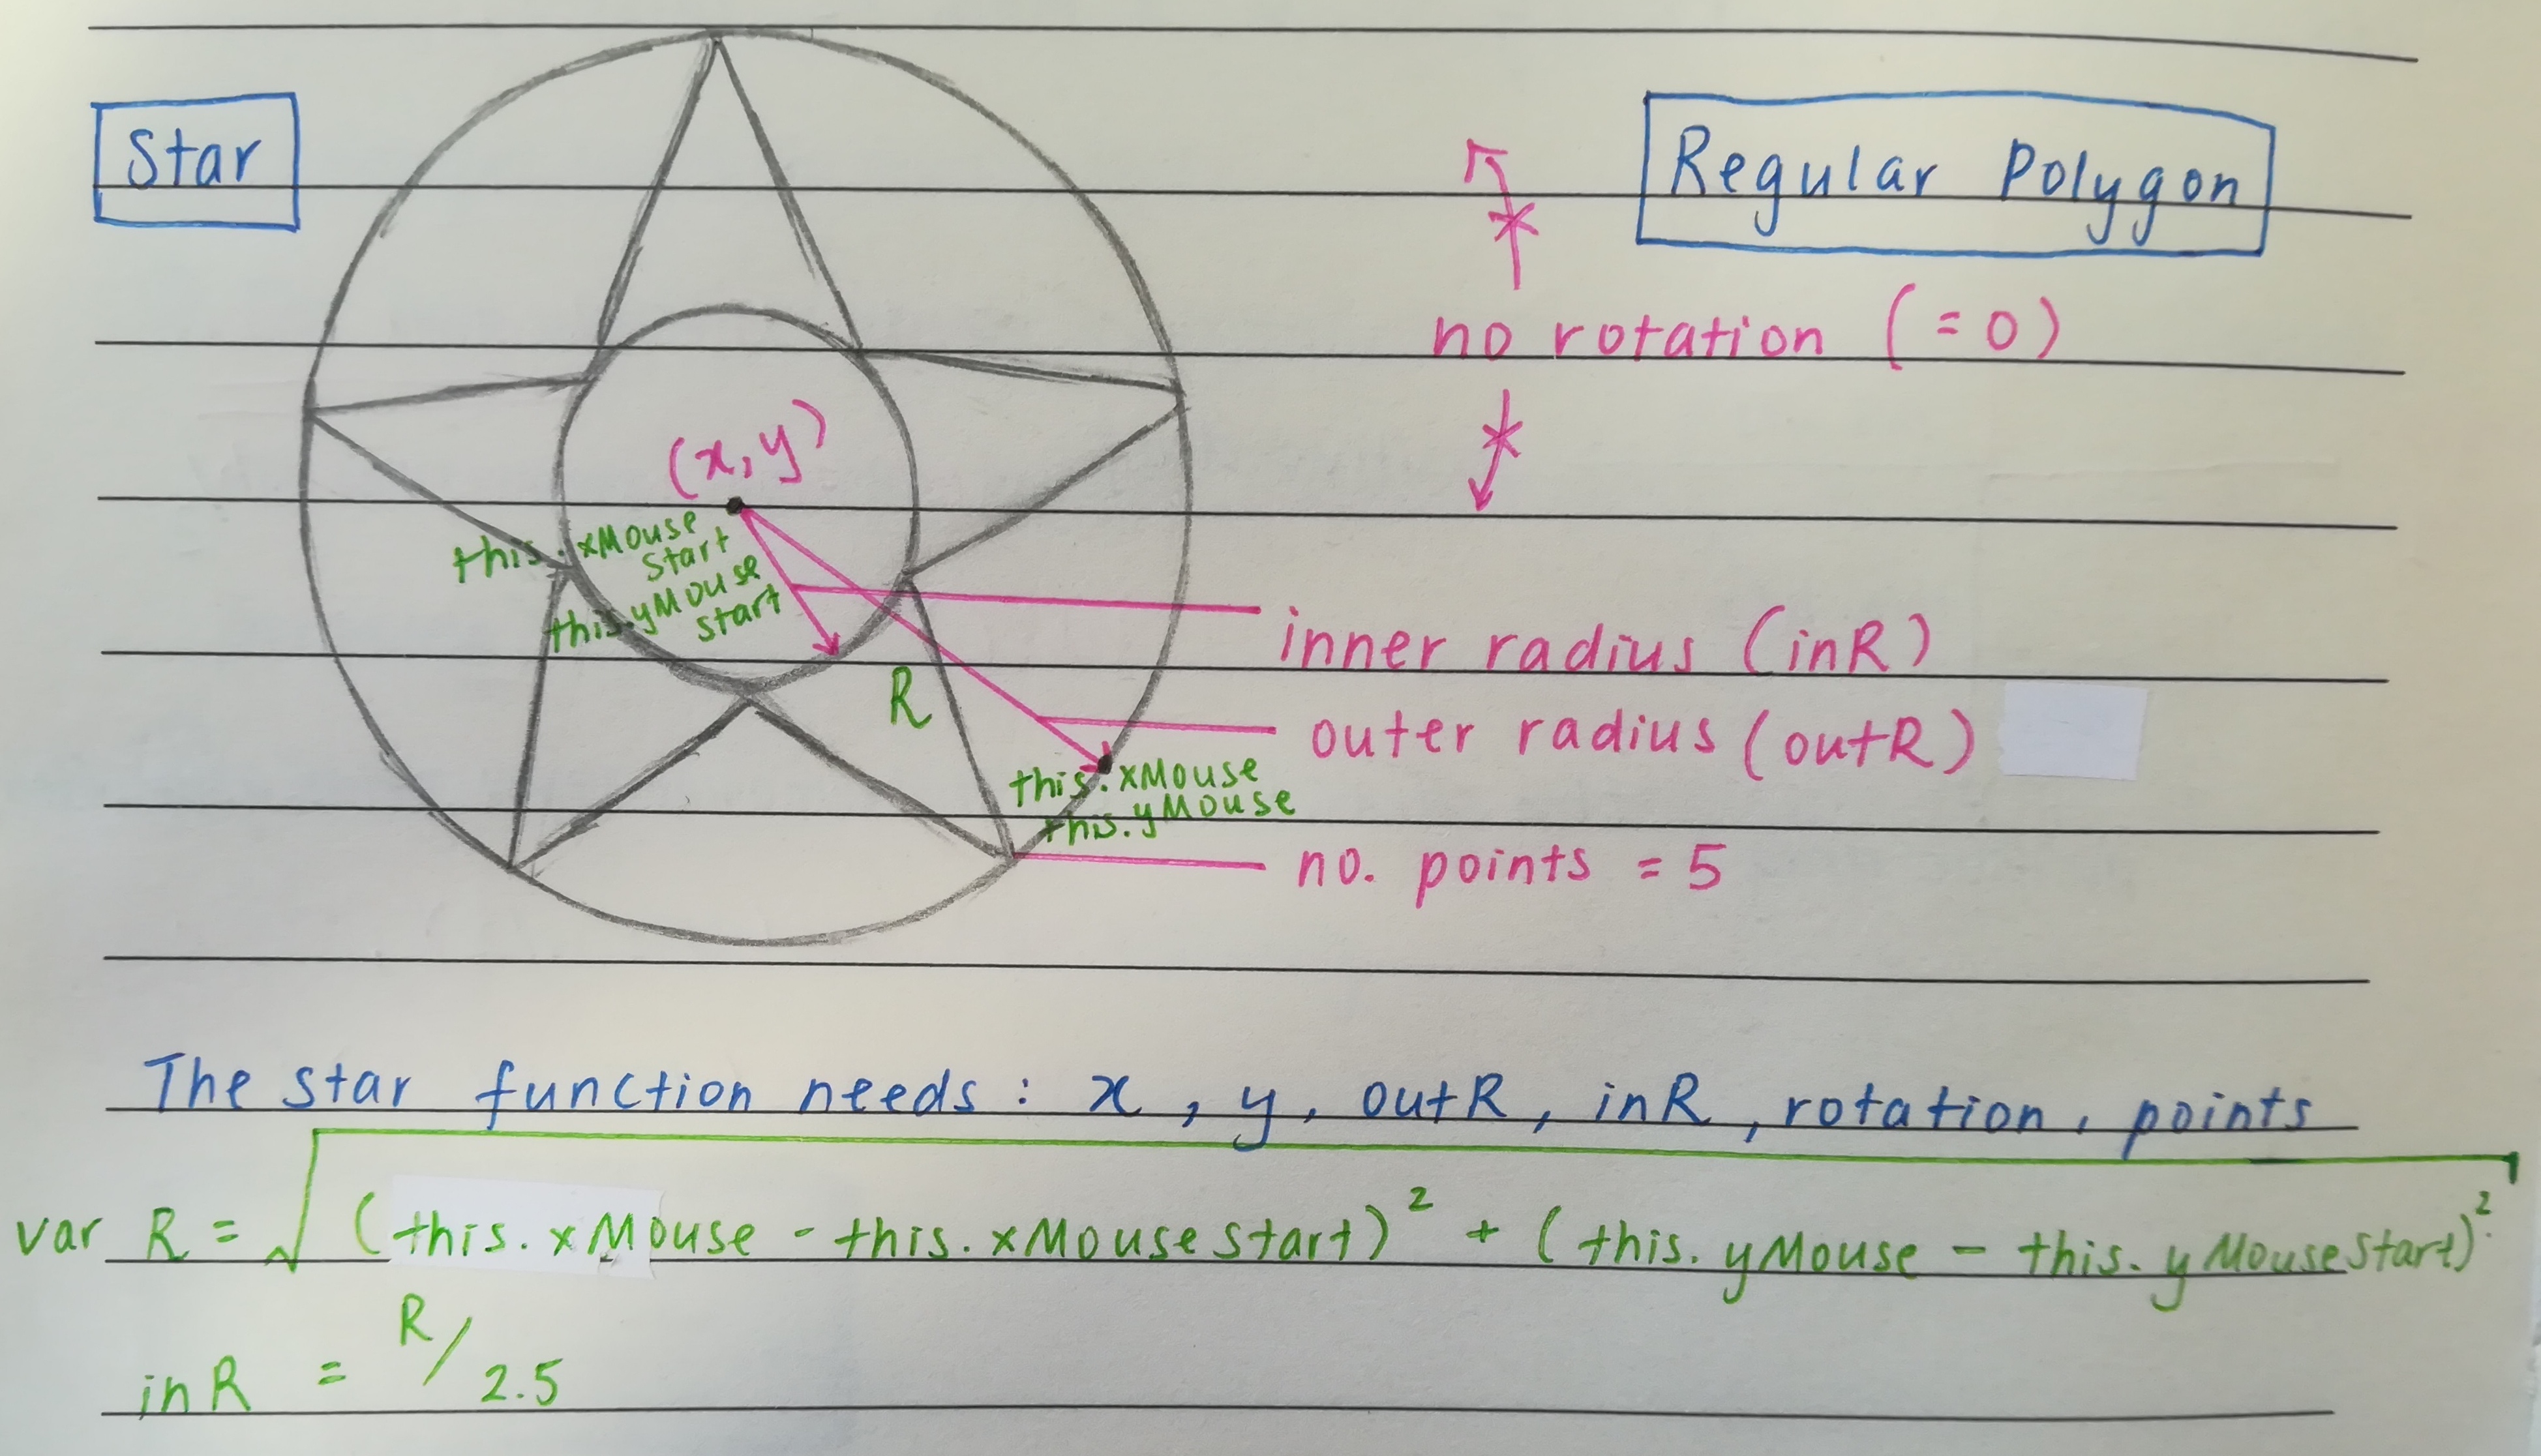 Star
Regular Polygon
no rotation (= 0)
(x, y)
this.xMouse
Start
this.yMouse
start
inner radius (inR)
R
outer radius (outR)
this.xMouse
this.yMouse
no. points = 5
The star function needs : x , y , outR , inR , rotation , points
var R = √ (this.xMouse - this.xMouseStart)² + (this.yMouse - this.yMouseStart)²
inR = R/2.5